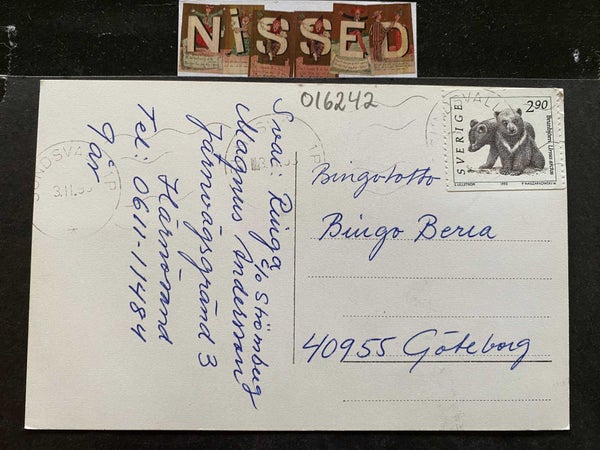 NiSSED
016242
SVERIGE
2.90
Brunbjörn Ursus arctos
1993
SUNDSVALL 1P
3.11.93
Svar: Ringa
c/o Strömbug
Magnus Andersson
Järnvägsgränd 3
Härnösand
Tel: 0611-11484
Går
Bingolotto
Bingo Berra
40955 Göteborg